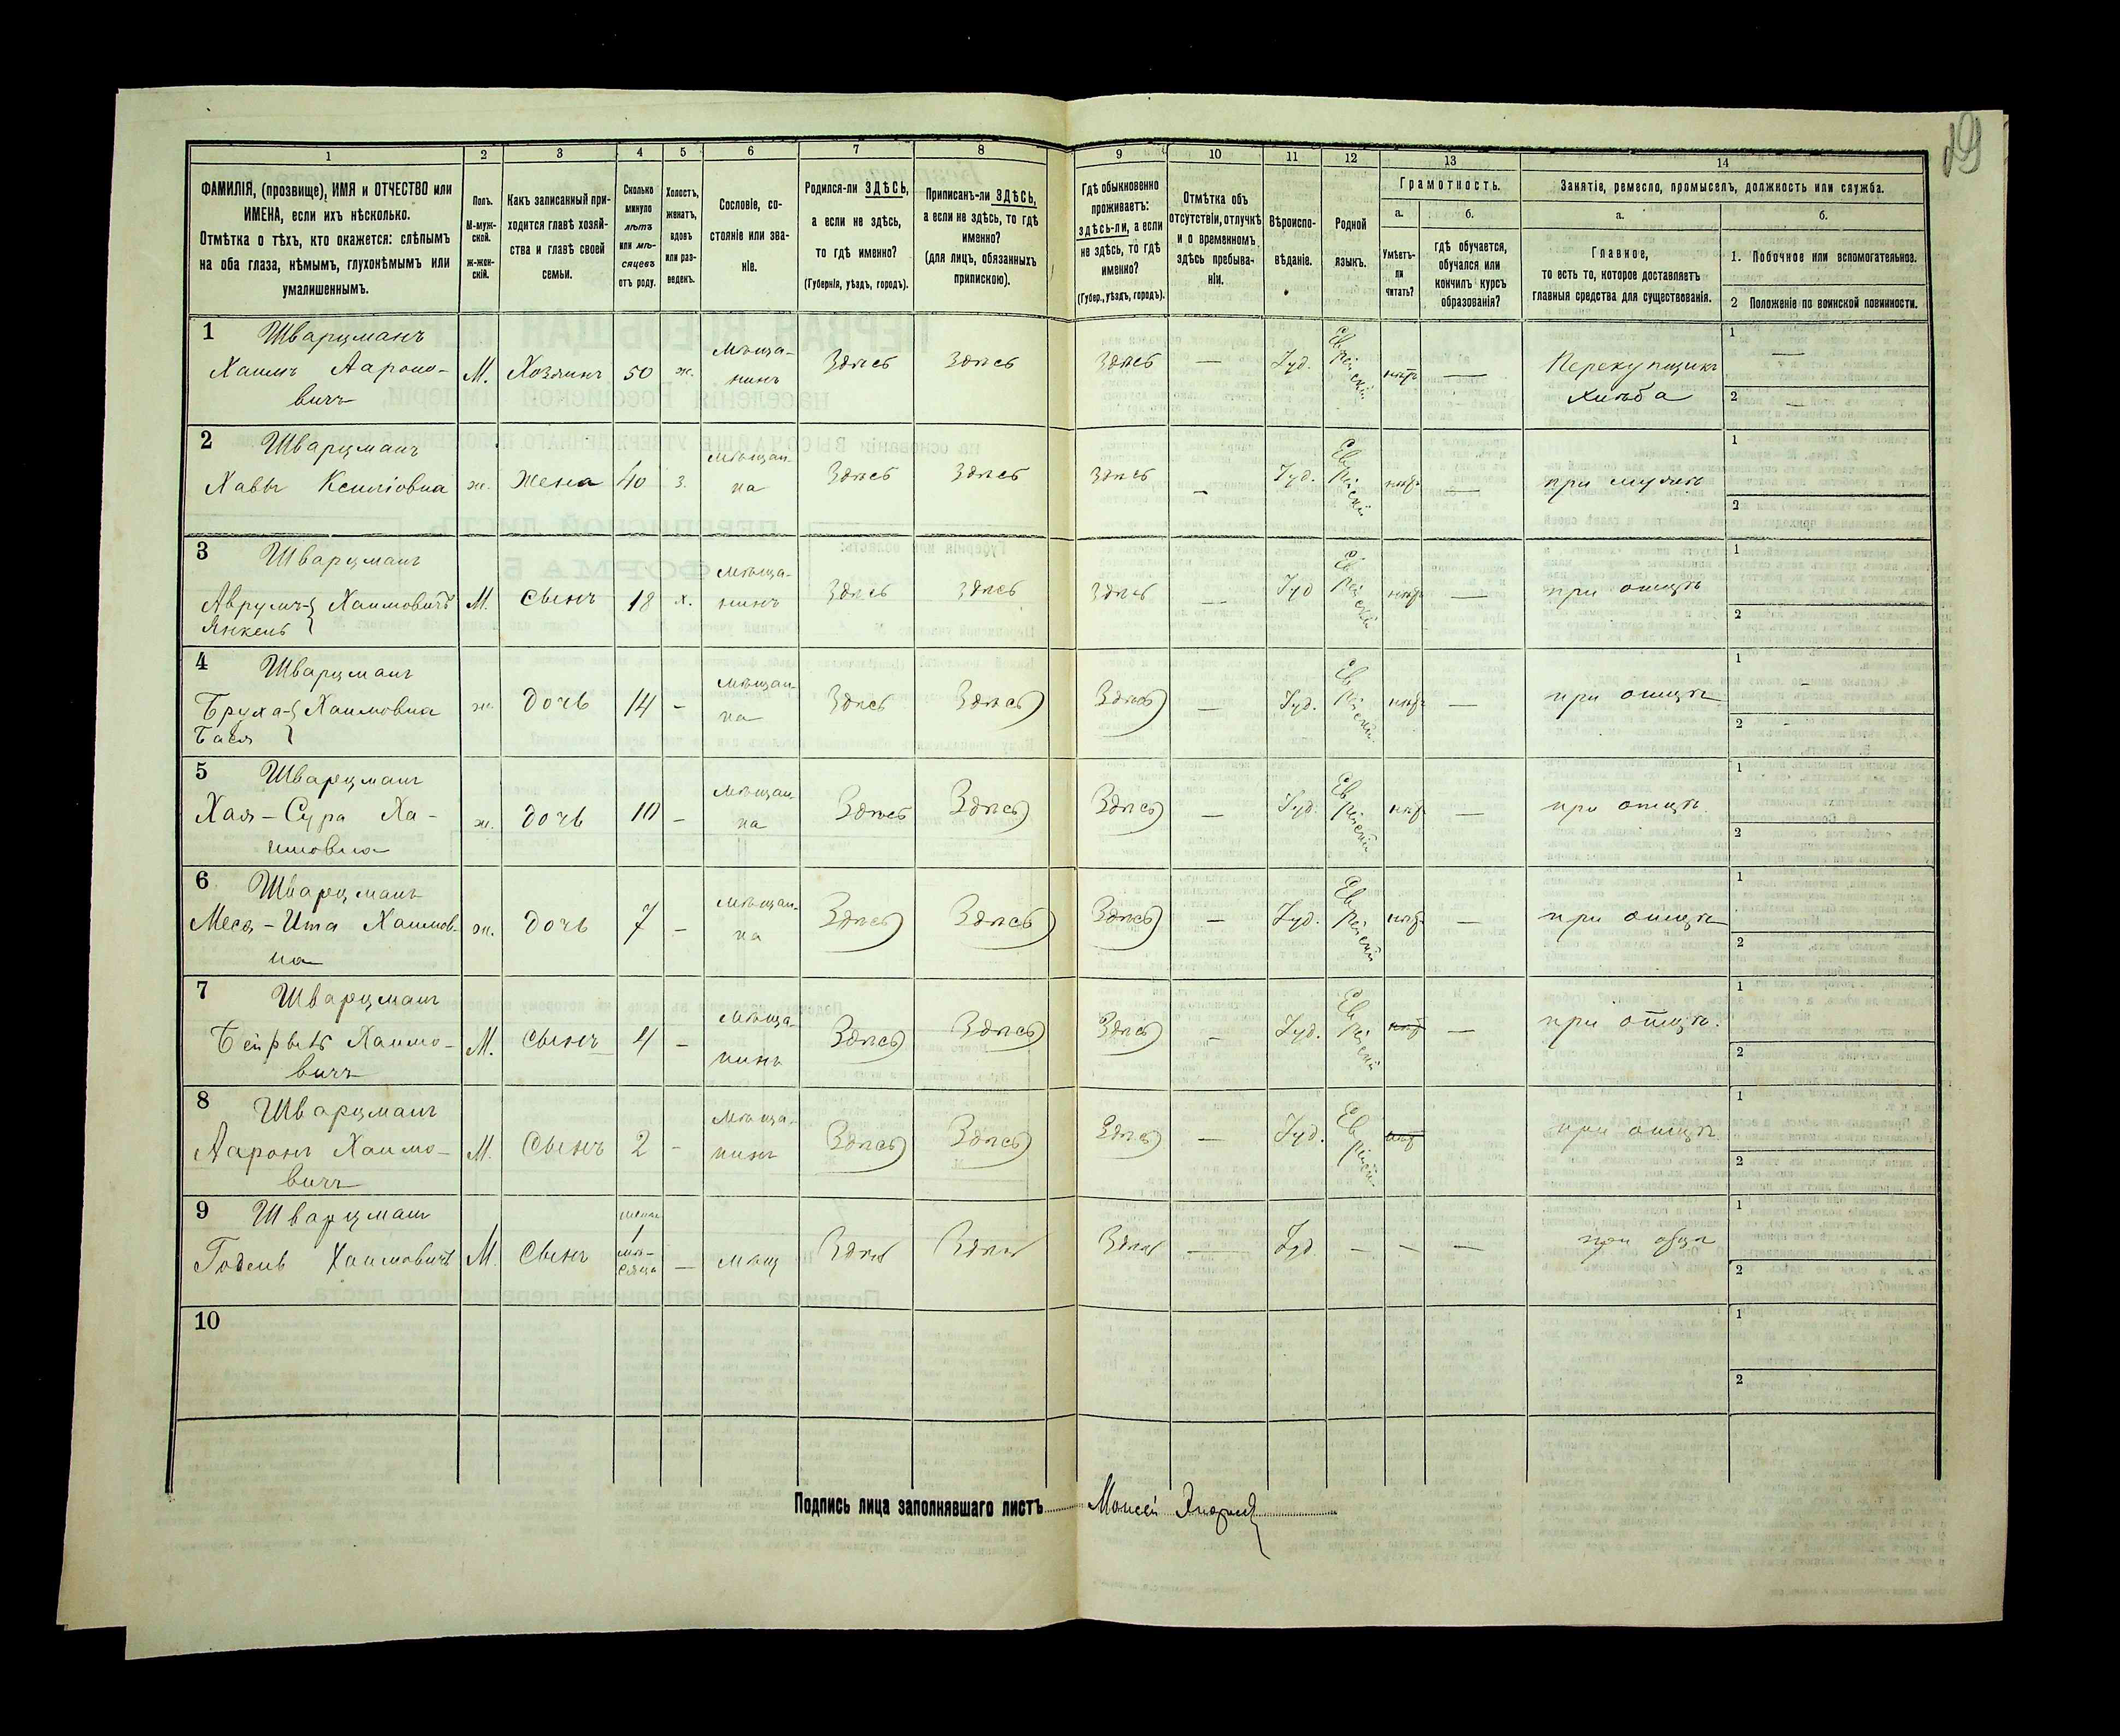 19
1 2 3 4 5 6 7 8 9 10 11 12 13 14
ФАМИЛІЯ, (прозвище), ИМЯ и ОТЧЕСТВО или
ИМЕНА, если ихъ нѣсколько.
Отмѣтка о тѣхъ, кто окажется: слѣпымъ
на оба глаза, нѣмымъ, глухонѣмымъ или
умалишеннымъ.
Полъ.
М-муж-
ской.
ж-жен-
скій.
Какъ записанный при-
ходится главѣ хозяй-
ства и главѣ своей
семьи.
Сколько
минуло
лѣтъ
или мѣ-
сяцевъ
отъ роду.
Холостъ,
женатъ,
вдовъ
или раз-
веденъ.
Сословіе, со-
стояніе или зва-
ніе.
Родился-ли ЗДѢСЬ,
а если не здѣсь,
то гдѣ именно?
(Губернія, уѣздъ, городъ).
Приписанъ-ли ЗДѢСЬ,
а если не здѣсь, то гдѣ
именно?
(для лицъ, обязанныхъ
припискою).
Гдѣ обыкновенно
проживаетъ:
здѣсь-ли, а если
не здѣсь, то гдѣ
именно?
(Губер., уѣздъ, городъ).
Отмѣтка объ
отсутствіи, отлучкѣ
и о временномъ
здѣсь пребыва-
ніи.
Вѣроиспо-
вѣданіе.
Родной
языкъ.
Грамотность.
а.
Умѣетъ-
ли
читать?
б.
гдѣ обучается,
обучался или
кончилъ курсъ
образованія?
Занятіе, ремесло, промыселъ, должность или служба.
а.
Главное,
то есть то, которое доставляетъ
главныя средства для существованія.
б.
1. Побочное или вспомогательное.
2 Положеніе по воинской повинности.
1 Шварцманъ
Хаимъ Аароно-
вичъ
М. Хозяинъ 50 ж. Мѣща-
нинъ
Здѣсь Здѣсь Здѣсь — Іуд. Еврейскій нѣтъ —
Перекупщикъ
хлѣба
1 —
2 —
2 Шварцманъ
Хавы
ж. жена 40 з. мѣщан-
ка
Здѣсь Здѣсь Здѣсь — Іуд. Еврейскій нѣтъ — при мужѣ
1
2
3 Шварцманъ
Аврумъ- Хаимовичъ
Янкель
М. сынъ 18 х. мѣща-
нинъ
Здѣсь Здѣсь Здѣсь — Іуд Еврейскій нѣтъ — при отцѣ
1
2
4 Шварцманъ
Бруха- Хаимовна
Бася
ж. дочь 14 – мѣщан-
ка
Здѣсь Здѣсь Здѣсь — Іуд. Еврейскій нѣтъ — при отцѣ
1 –
2 –
5 Шварцманъ
Хая-Сура Ха-
имовна
ж. дочь 10 – мѣщан-
ка
Здѣсь Здѣсь Здѣсь — Іуд. Еврейскій нѣтъ — при отцѣ
1
2
6 Шварцманъ
Меся-Ита Хаимов-
на
ж. дочь 7 – мѣщан-
ка
Здѣсь Здѣсь Здѣсь — Іуд. Еврейскій нѣтъ — при отцѣ
1
2
7 Шварцманъ
Хаимо-
вичъ
М. сынъ 4 – мѣща-
нинъ
Здѣсь Здѣсь Здѣсь — Іуд. Еврейскій нѣтъ — при отцѣ.
1
2
8 Шварцманъ
Ааронъ Хаимо-
вичъ
М. сынъ 2 – мѣща-
нинъ
Здѣсь Здѣсь Здѣсь — Іуд. Еврейскій нѣтъ при отцѣ
1
2
9 Шварцманъ
Годель Хаимовичъ
М. сынъ
1
мѣ-
сяца
— мѣщ Здѣсь Здѣсь Здѣсь — Іуд – – — при отцѣ
1
2
10
1
2
Подпись лица заполнявшаго листъ Моисей